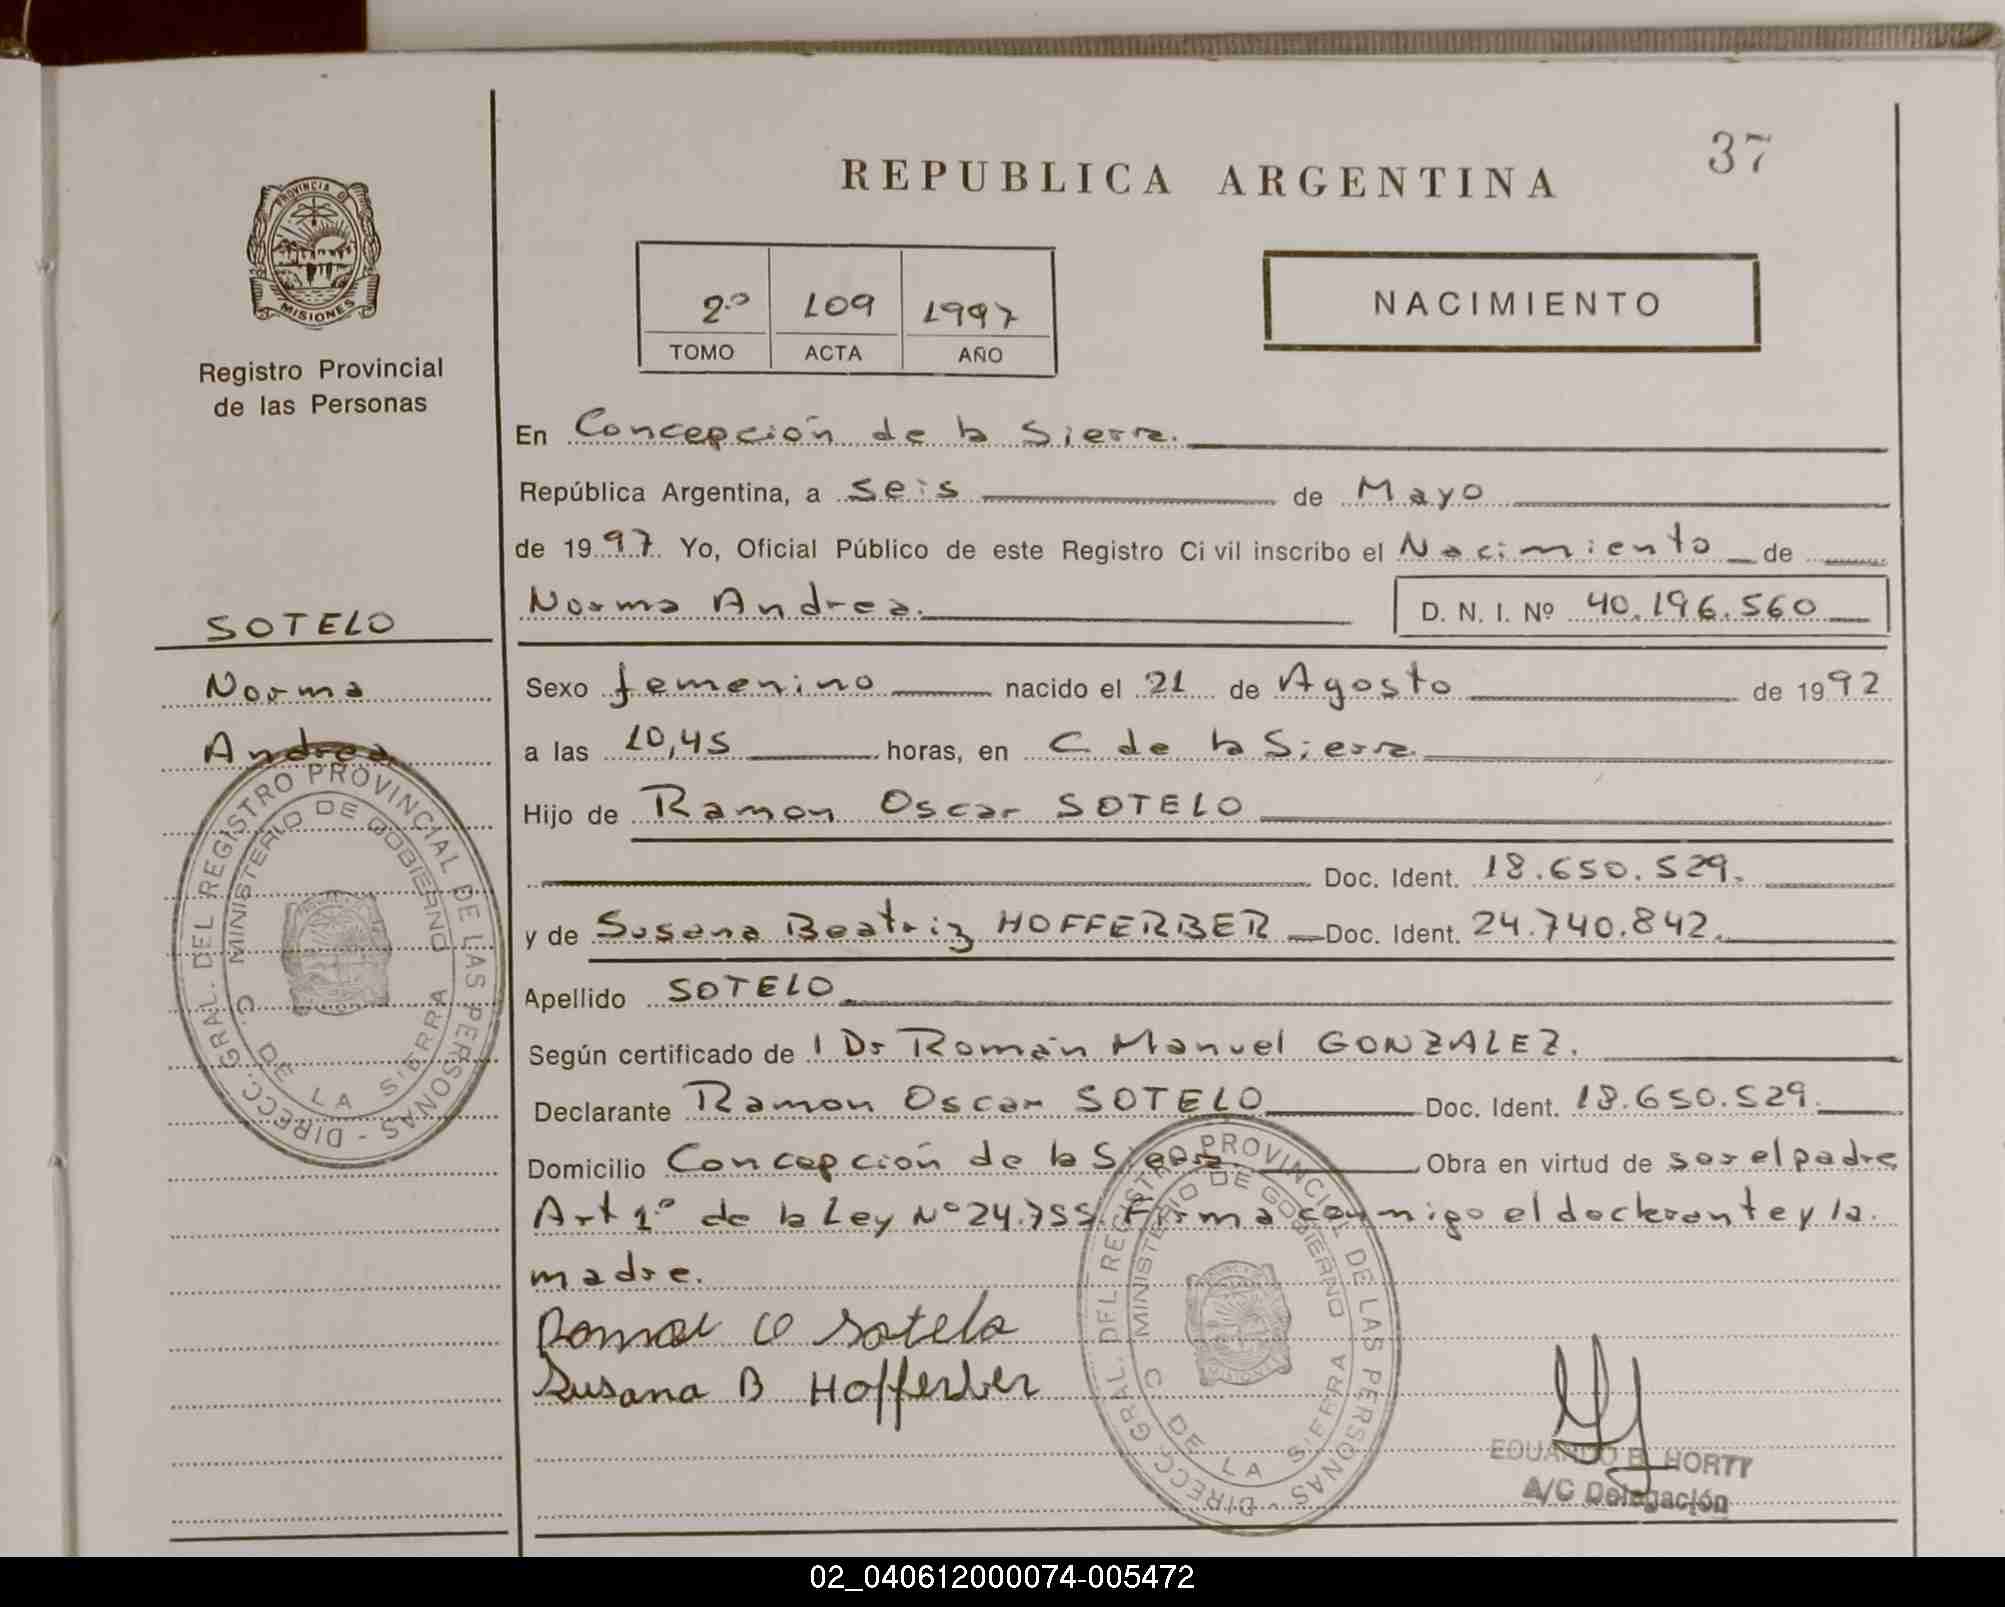 37
REPUBLICA ARGENTINA
PROVINCIA DE
MISIONES
Registro Provincial
de las Personas
2º 109 1997
TOMO ACTA AÑO
NACIMIENTO
En Concepción de la Sierra.
República Argentina, a seis de Mayo
de 1997. Yo, Oficial Público de este Registro Civil inscribo el Nacimiento de
Norma Andrea. D. N. I. Nº 40.196.560
SOTELO
Norma
Andrea
Sexo femenino nacido el 21 de Agosto de 1992
a las 10,45 horas, en C. de la Sierra.
Hijo de Ramon Oscar SOTELO
Doc. Ident. 18.650.529.
y de Susana Beatriz HOFFERBER Doc. Ident. 24.740.842.
Apellido SOTELO
Según certificado de l Dr Román Manuel GONZALEZ.
Declarante Ramon Oscar SOTELO Doc. Ident. 18.650.529.
Domicilio Concepción de la Sierra. Obra en virtud de ser el padre
Art 1º de la Ley Nº 24.755. Firma conmigo el declarante y la
madre.
Ramon O Sotelo
Susana B Hofferber
DIRECC. GRAL. DEL REGISTRO PROVINCIAL DE LAS PERSONAS -
MINISTERIO DE GOBIERNO
C. DE LA SIERRA
DIRECC. GRAL. DEL REGISTRO PROVINCIAL DE LAS PERSONAS -
MINISTERIO DE GOBIERNO
C. DE LA SIERRA
EDUARDO B. HORTT
A/C Delegación
02_040612000074-005472